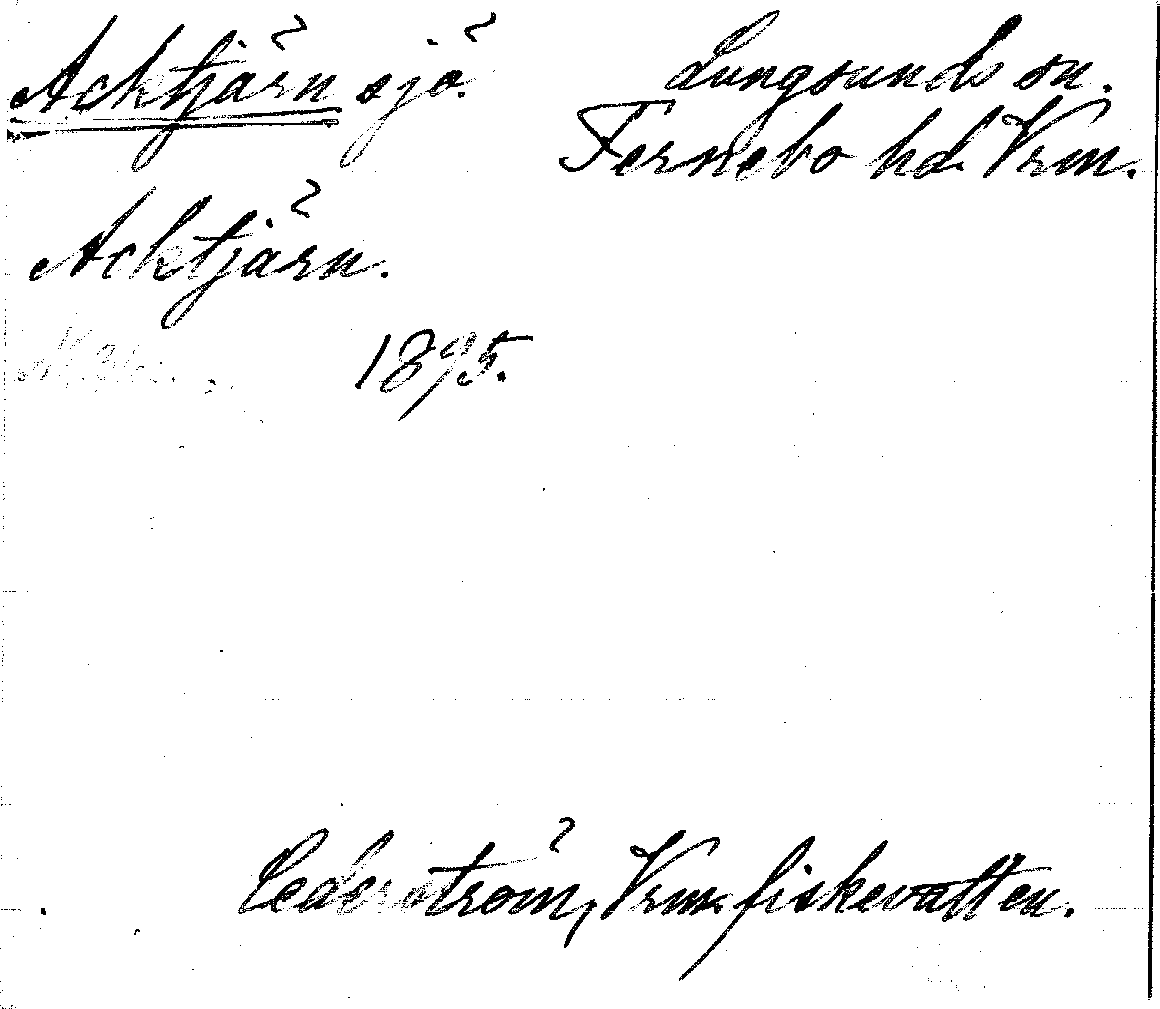 Acktjärn sjö. Lungsunds sn.
Fernebo hd. Vrm.
Acktjärn.
1895.
Cederström, Vrm. fiskevatten.